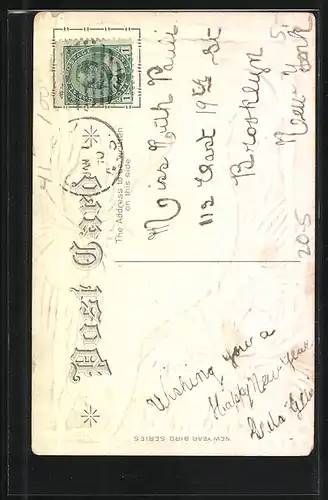 Post Card
The Address to be Written
on this side
Miss Ruth Paul
112 East 19th St
Brooklyn
New York
205
Wishing you a
Happy New Year
NEW YEAR BIRD SERIES
1